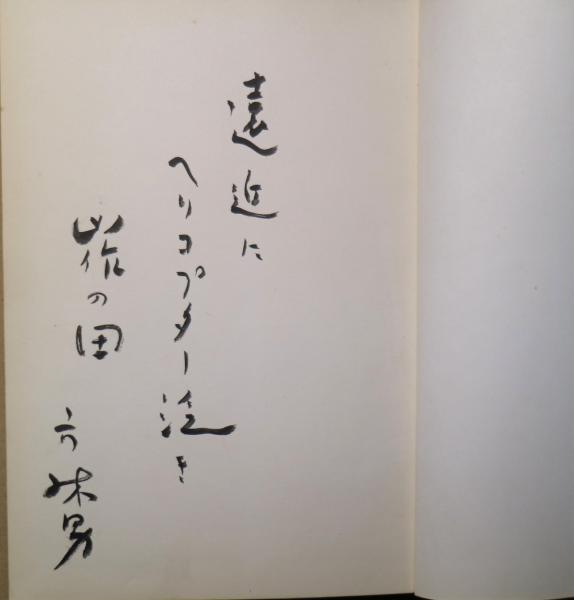 遠近に
ヘリコプター泛き
凶作の田
六林男